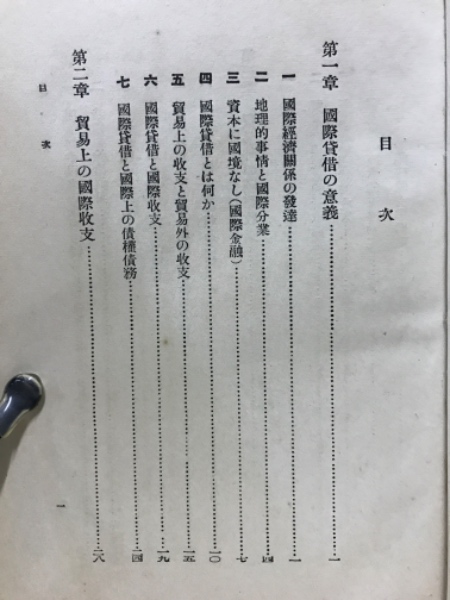 目次
第一章 國際貸借の意義…………一
一 國際經濟關係の發達…………一
二 地理的事情と國際分業…………四
三 資本に國境なし(國際金融)…………七
四 國際貸借とは何か…………一〇
五 貿易上の收支と貿易外の收支…………一五
六 國際貸借と國際收支…………一九
七 國際貸借と國際上の債權債務…………二四
第二章 貿易上の國際收支…………二八
目次
一